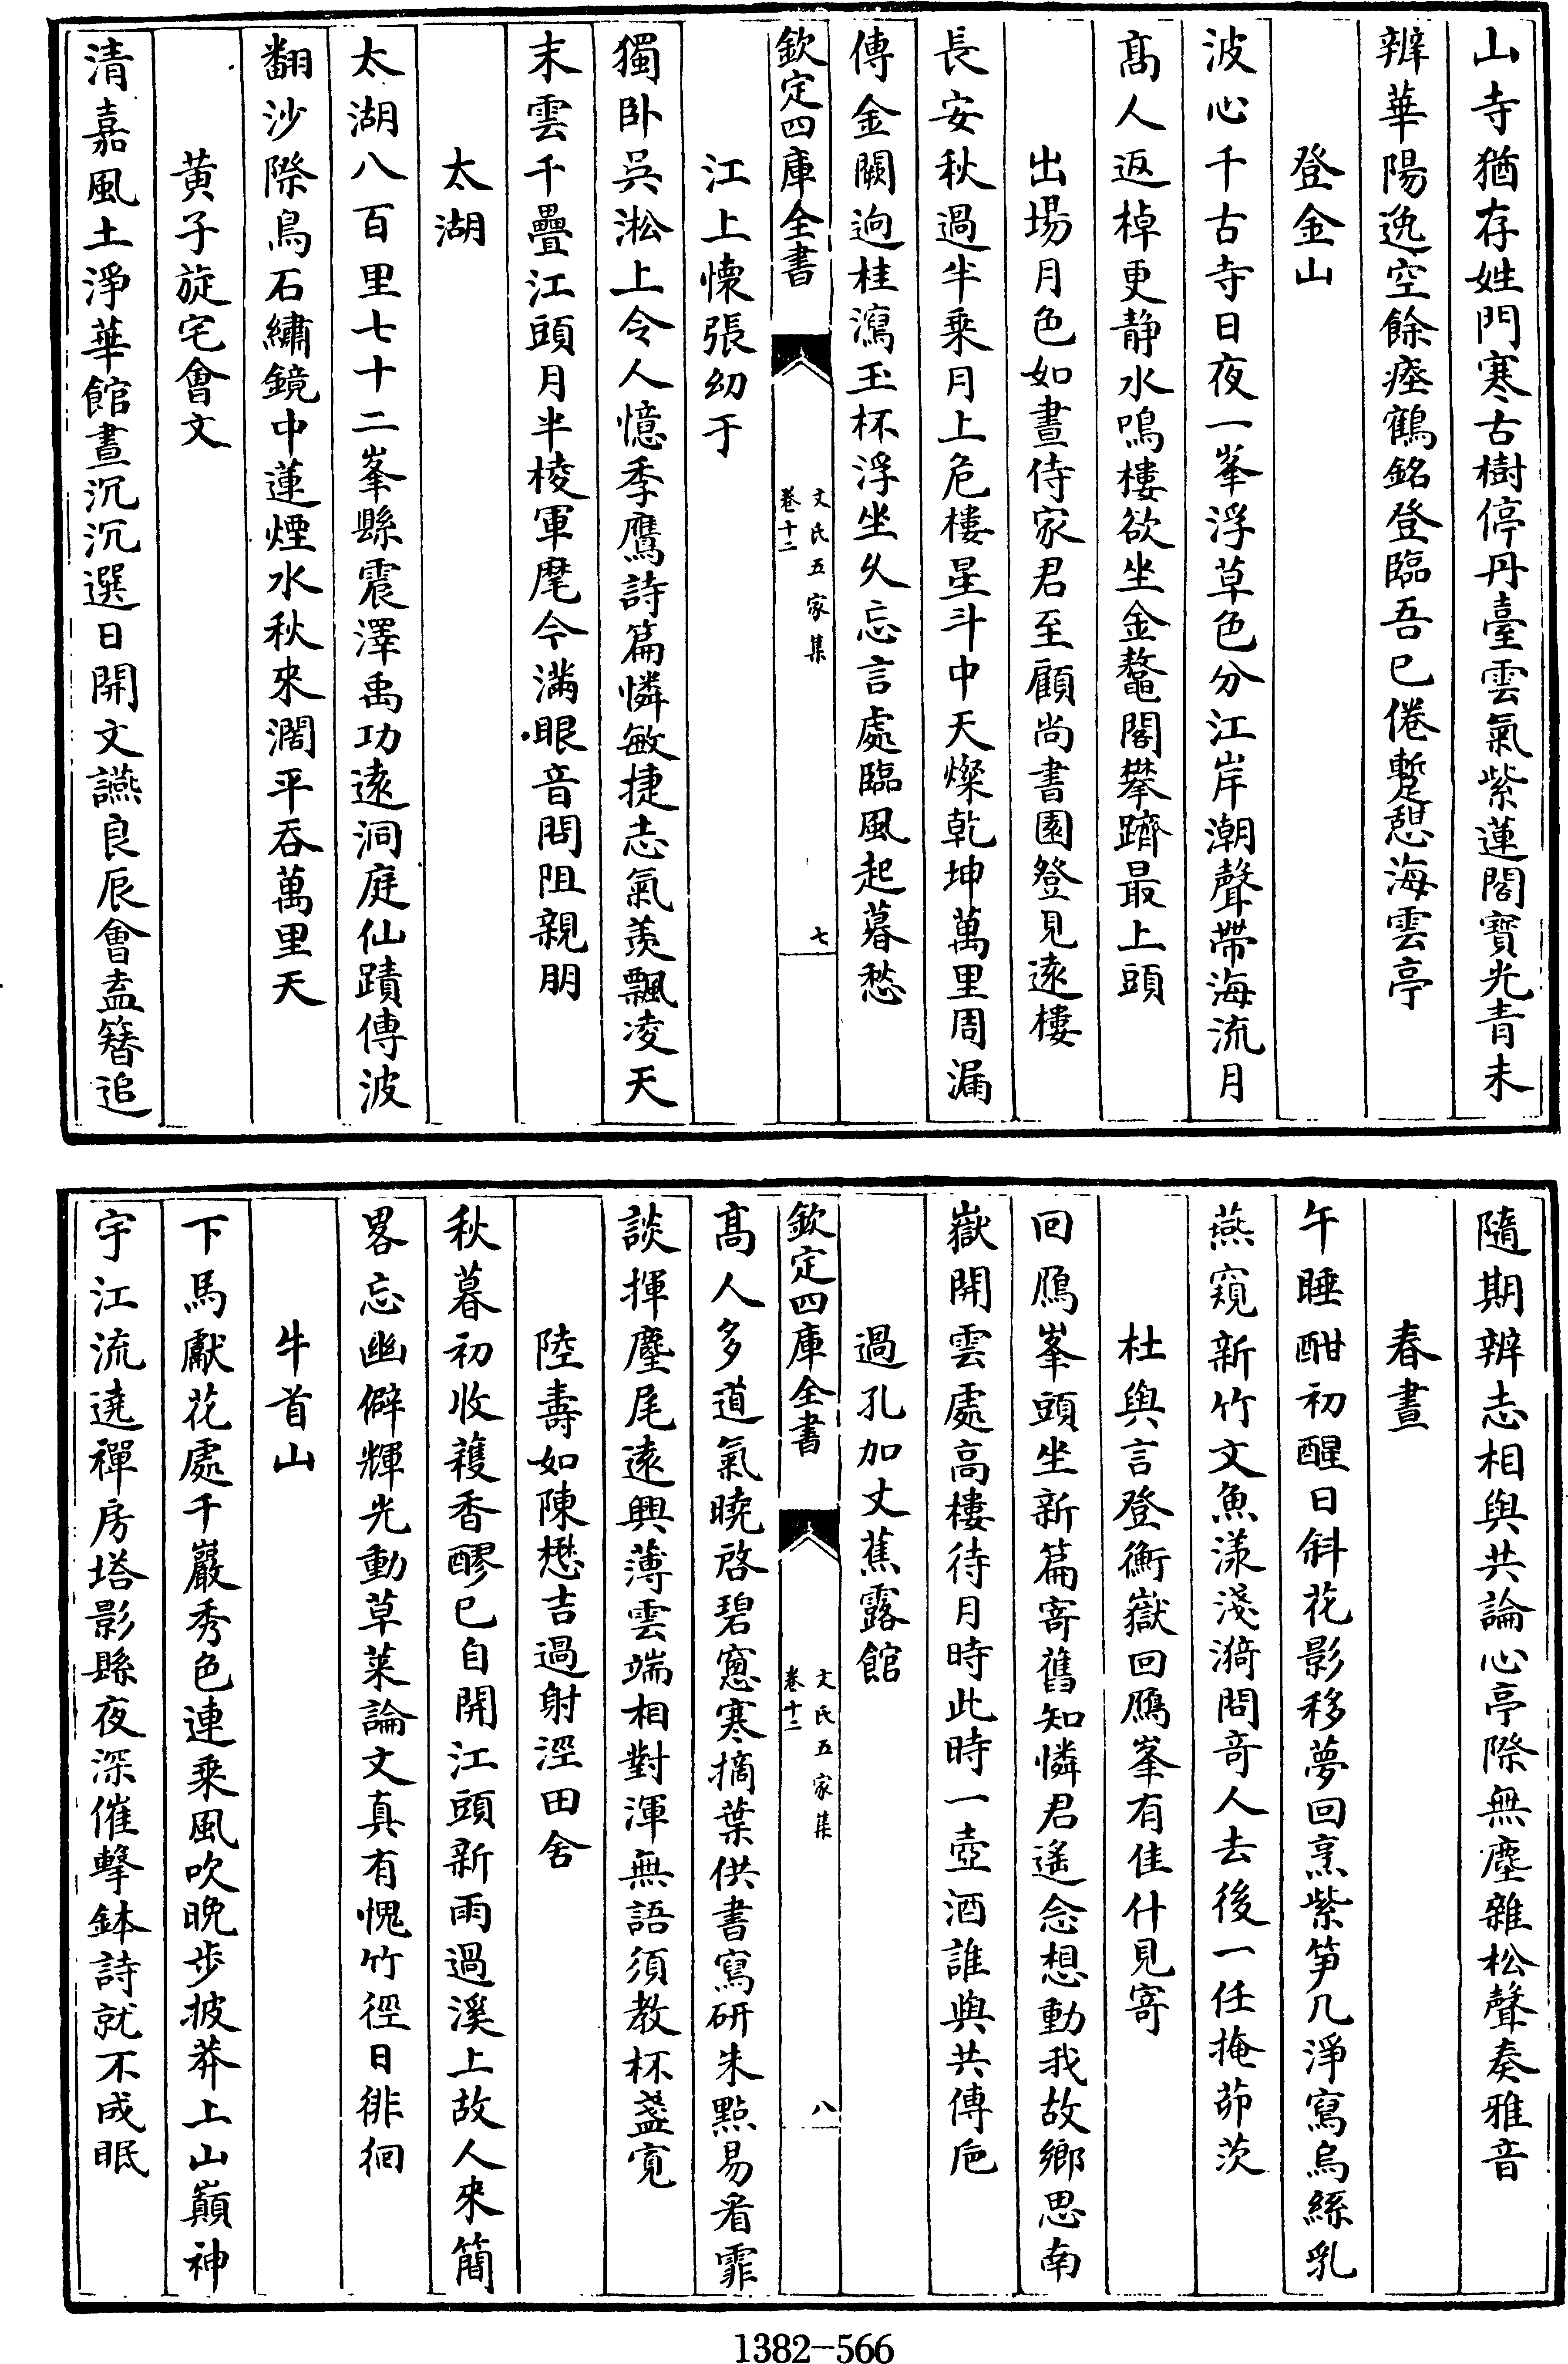 山寺猶存姓門寒古樹停丹臺雲氣紫蓮閣寶光青未
辨華陽逸空餘瘞鶴銘登臨吾已倦蹔憩海雲亭
登金山
波心千古寺日夜一峯浮草色分江岸潮聲帶海流月
髙人返棹更静水鳴樓欲坐金鼇閣攀躋最上頭
出場月色如晝侍家君至顧尚書園登見逺樓
長安秋過半乗月上危樓星斗中天燦乾坤萬里周漏
傳金闕逈桂瀉玉杯浮坐乆忘言處臨風起暮愁
欽定四庫全書
文氏五家集
卷十二
七
江上懐張幼于
獨卧吳淞上令人憶季鷹詩篇憐敏捷志氣羡飄凌天
末雲千疊江頭月半棱軍麾今滿眼音問阻親朋
太湖
太湖八百里七十二峯縣震澤禹功逺洞庭仙蹟傳波
翻沙際鳥石繡鏡中蓮煙水秋來濶平吞萬里天
黄子旋宅會文
清嘉風土淨華館晝沉沉選日開文讌良辰會盍簪追
隨期辨志相與共論心亭際無塵雜松聲奏雅音
春晝
午睡酣初醒日斜花影移夢回烹紫笋几淨寫烏絲乳
燕窺新竹文魚漾淺漪問竒人去後一任掩茆茨
杜與言登衡嶽回鴈峯有佳什見寄
回鴈峯頭坐新篇寄舊知憐君遥念想動我故鄉思南
嶽開雲處高樓待月時此時一壺酒誰與共傳巵
過孔加丈蕉露館
欽定四庫全書
文氏五家集
卷十二
八
髙人多道氣曉啓碧窻寒摘葉供書寫研朱㸃易看霏
談揮麈尾逺興薄雲端相對渾無語須教杯盞寛
陸壽如陳懋吉過射涇田舍
秋暮初收穫香醪已自開江頭新雨過溪上故人來簡
畧忘幽僻輝光動草萊論文真有愧竹徑日徘徊
牛首山
下馬獻花處千巖秀色連乗風吹晚步披莽上山巔神
宇江流遶禪房塔影縣夜深催擊鉢詩就不成眠
1382-566